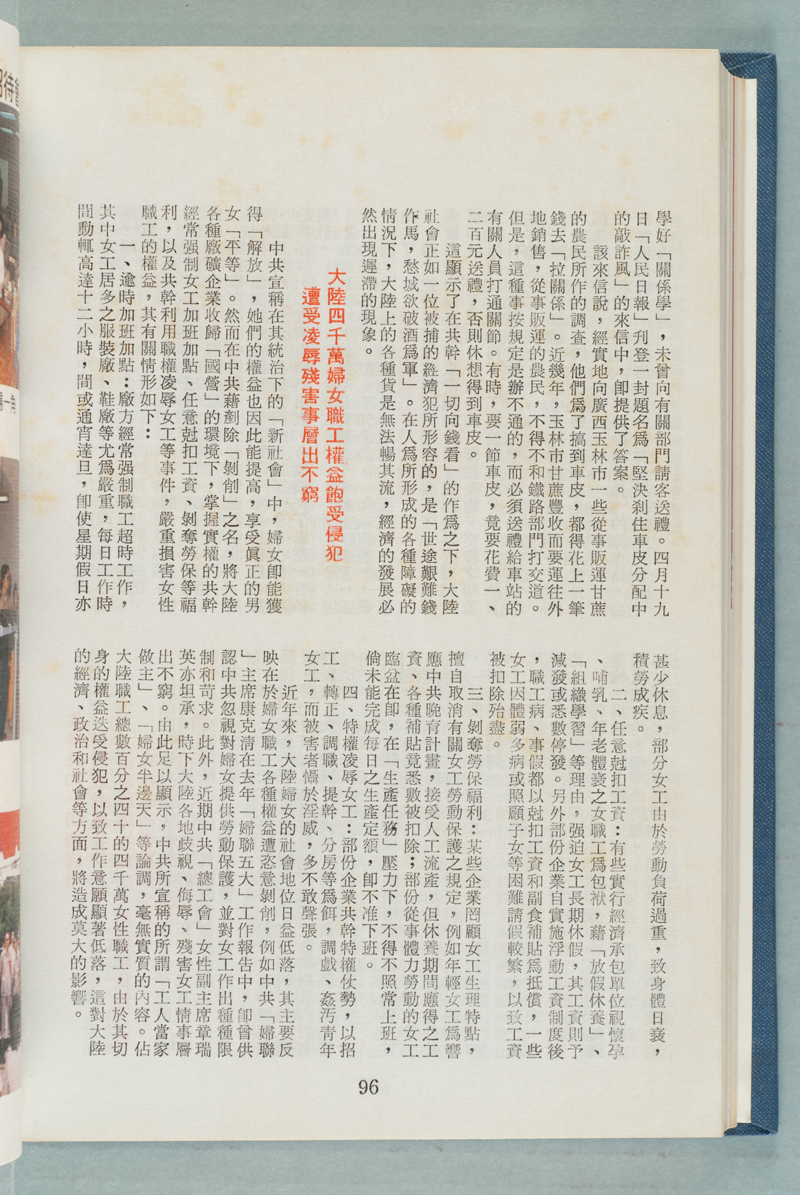 學好「關係學」，未曾向有關部門請客送禮。四月十九
日「人民日報」刋登一封題名爲「堅決刹住車皮分配中
的敲詐風」的來信中，卽提供了答案。
該來信說，經實地向廣西玉林市一些從事販運甘蔗
的農民所作的調查，他們爲了搞到車皮，都得花上一筆
錢去「拉關係」。近幾年，玉林市甘蔗豐收而要運往外
地銷售，從事販運的農民，不得不和鐵路部門打交道。
但是，這種事按規定是辦不通的，而必須送禮給車站的
有關人員打通關節。有時，要一節車皮，竟要花費一、
二百元送禮，否則休想得到車皮。
這顯示了在共幹「一切向錢看」的作爲之下，大陸
社會正如一位被捕的經濟犯所形容的，是「世途艱難錢
作馬，愁城欲破酒爲軍」。在人爲所形成的各種障礙的
情況下，大陸上的各種貨是無法暢其流，經濟的發展必
然出現遲滯的現象。
大陸四千萬婦女職工權益飽受侵犯
遭受凌辱殘害事層出不窮
中共宣稱在其統治下的「新社會」中，婦女卽能獲
得「解放」，她們的權益也因此能提高，享受眞正的男
女「平等」。然而在中共藉剷除「剝削」之名，將大陸
各種廠礦企業收歸「國營」的環境下，掌握實權的共幹
經常强制女工加班加點、任意尅扣工資、剝奪勞保等福
利，以及共幹利用職權凌辱女工等事件，嚴重損害女性
職工的權益，其有關情形如下：
一、逾時加班加點：廠方經常强制職工超時工作，
其中女工居多之服裝廠、鞋廠等尤爲嚴重，每日工作時
間動輒高達十二小時，間或通宵達旦，卽使星期假日亦
甚少休息，部分女工由於勞動負荷過重，致身體日衰，
積勞成疾。
二、任意尅扣工資：有些實行經濟承包單位視懷孕
、哺乳、年老體衰之女職工爲包袱，藉「放假休養」、
「組織學習」等理由，强迫女工長期休假，其工資則予
減發或悉數停發。另外部份企業自實施浮動工資制度後
，職工病、事假都以尅扣工資和副食補貼爲抵償，一些
女工因體弱多病或照顧子女等困難請假較繁，以致工資
被扣除殆盡。
三、剝奪勞保福利：某些企業罔顧女工生理特點，
擅自取消有關女工勞動保護之規定，例如年輕女工爲響
應中共晚育計畫，接受人工流產，但休養期間應得之工
資、各種補貼竟悉數被扣除；部份從事體力勞動的女工
臨盆在卽，在「生產任務」壓力下，不得不照常上班，
倘未能完成每日之生產定額，卽不准下班。
四、特權凌辱女工：部份企業共幹特權仗勢，以招
工、轉正、調職、提幹、分房等爲餌，調戲、姦汚靑年
女工，而被害者懾於淫威，多不敢聲張。
近年來，大陸婦女的社會地位日益低落，其主要反
映在於婦女職工各種權益遭恣意剝削，例如中共「婦聯
」主席康克淸在去年「婦聯五大」工作報告中，卽曾供
認中共忽視對婦女提供勞動保護，並對女工作出種種限
制和苛求。此外，近期中共「總工會」女性副主席章瑞
英亦坦承，時下大陸各地歧視、侮辱、殘害女工情事層
出不窮。由此足以顯示，中共所宣稱的所謂「工人當家
做主」、「婦女半邊天」等論調，毫無實質的內容。佔
大陸職工總數百分之四十的四千萬女性職工，由於其切
身的權益迭受侵犯，以致工作意願顯著低落，這對大陸
的經濟、政治和社會等方面，將造成莫大的影響。
96